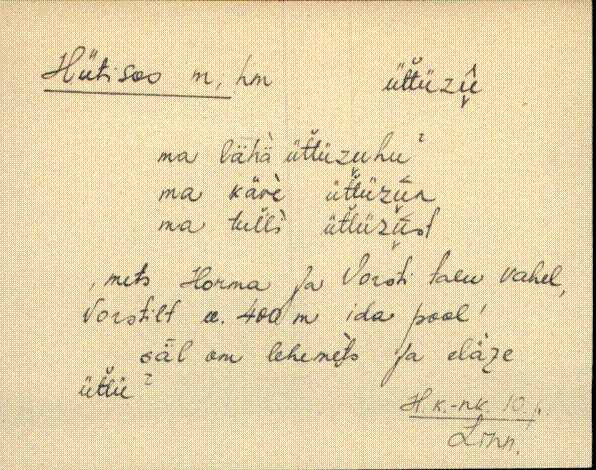 Hütisoo m, hm üttüzû̬
ma lähä üttüzuhu²
ma kävè üttüzu̬n
ma tullì üttüzu̬st
, mets Horma ja Vorsti talu vahel,
Vorstilt u. 400 m ida pool'
säl om lehemèts ja eläze
üttü²
H.k.-nk. 10
Linn.